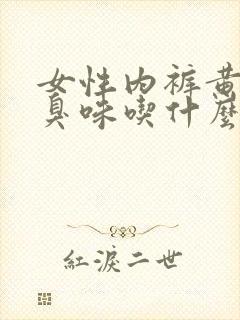 女性內裤黄
臭味喫什麼
紅淚二世